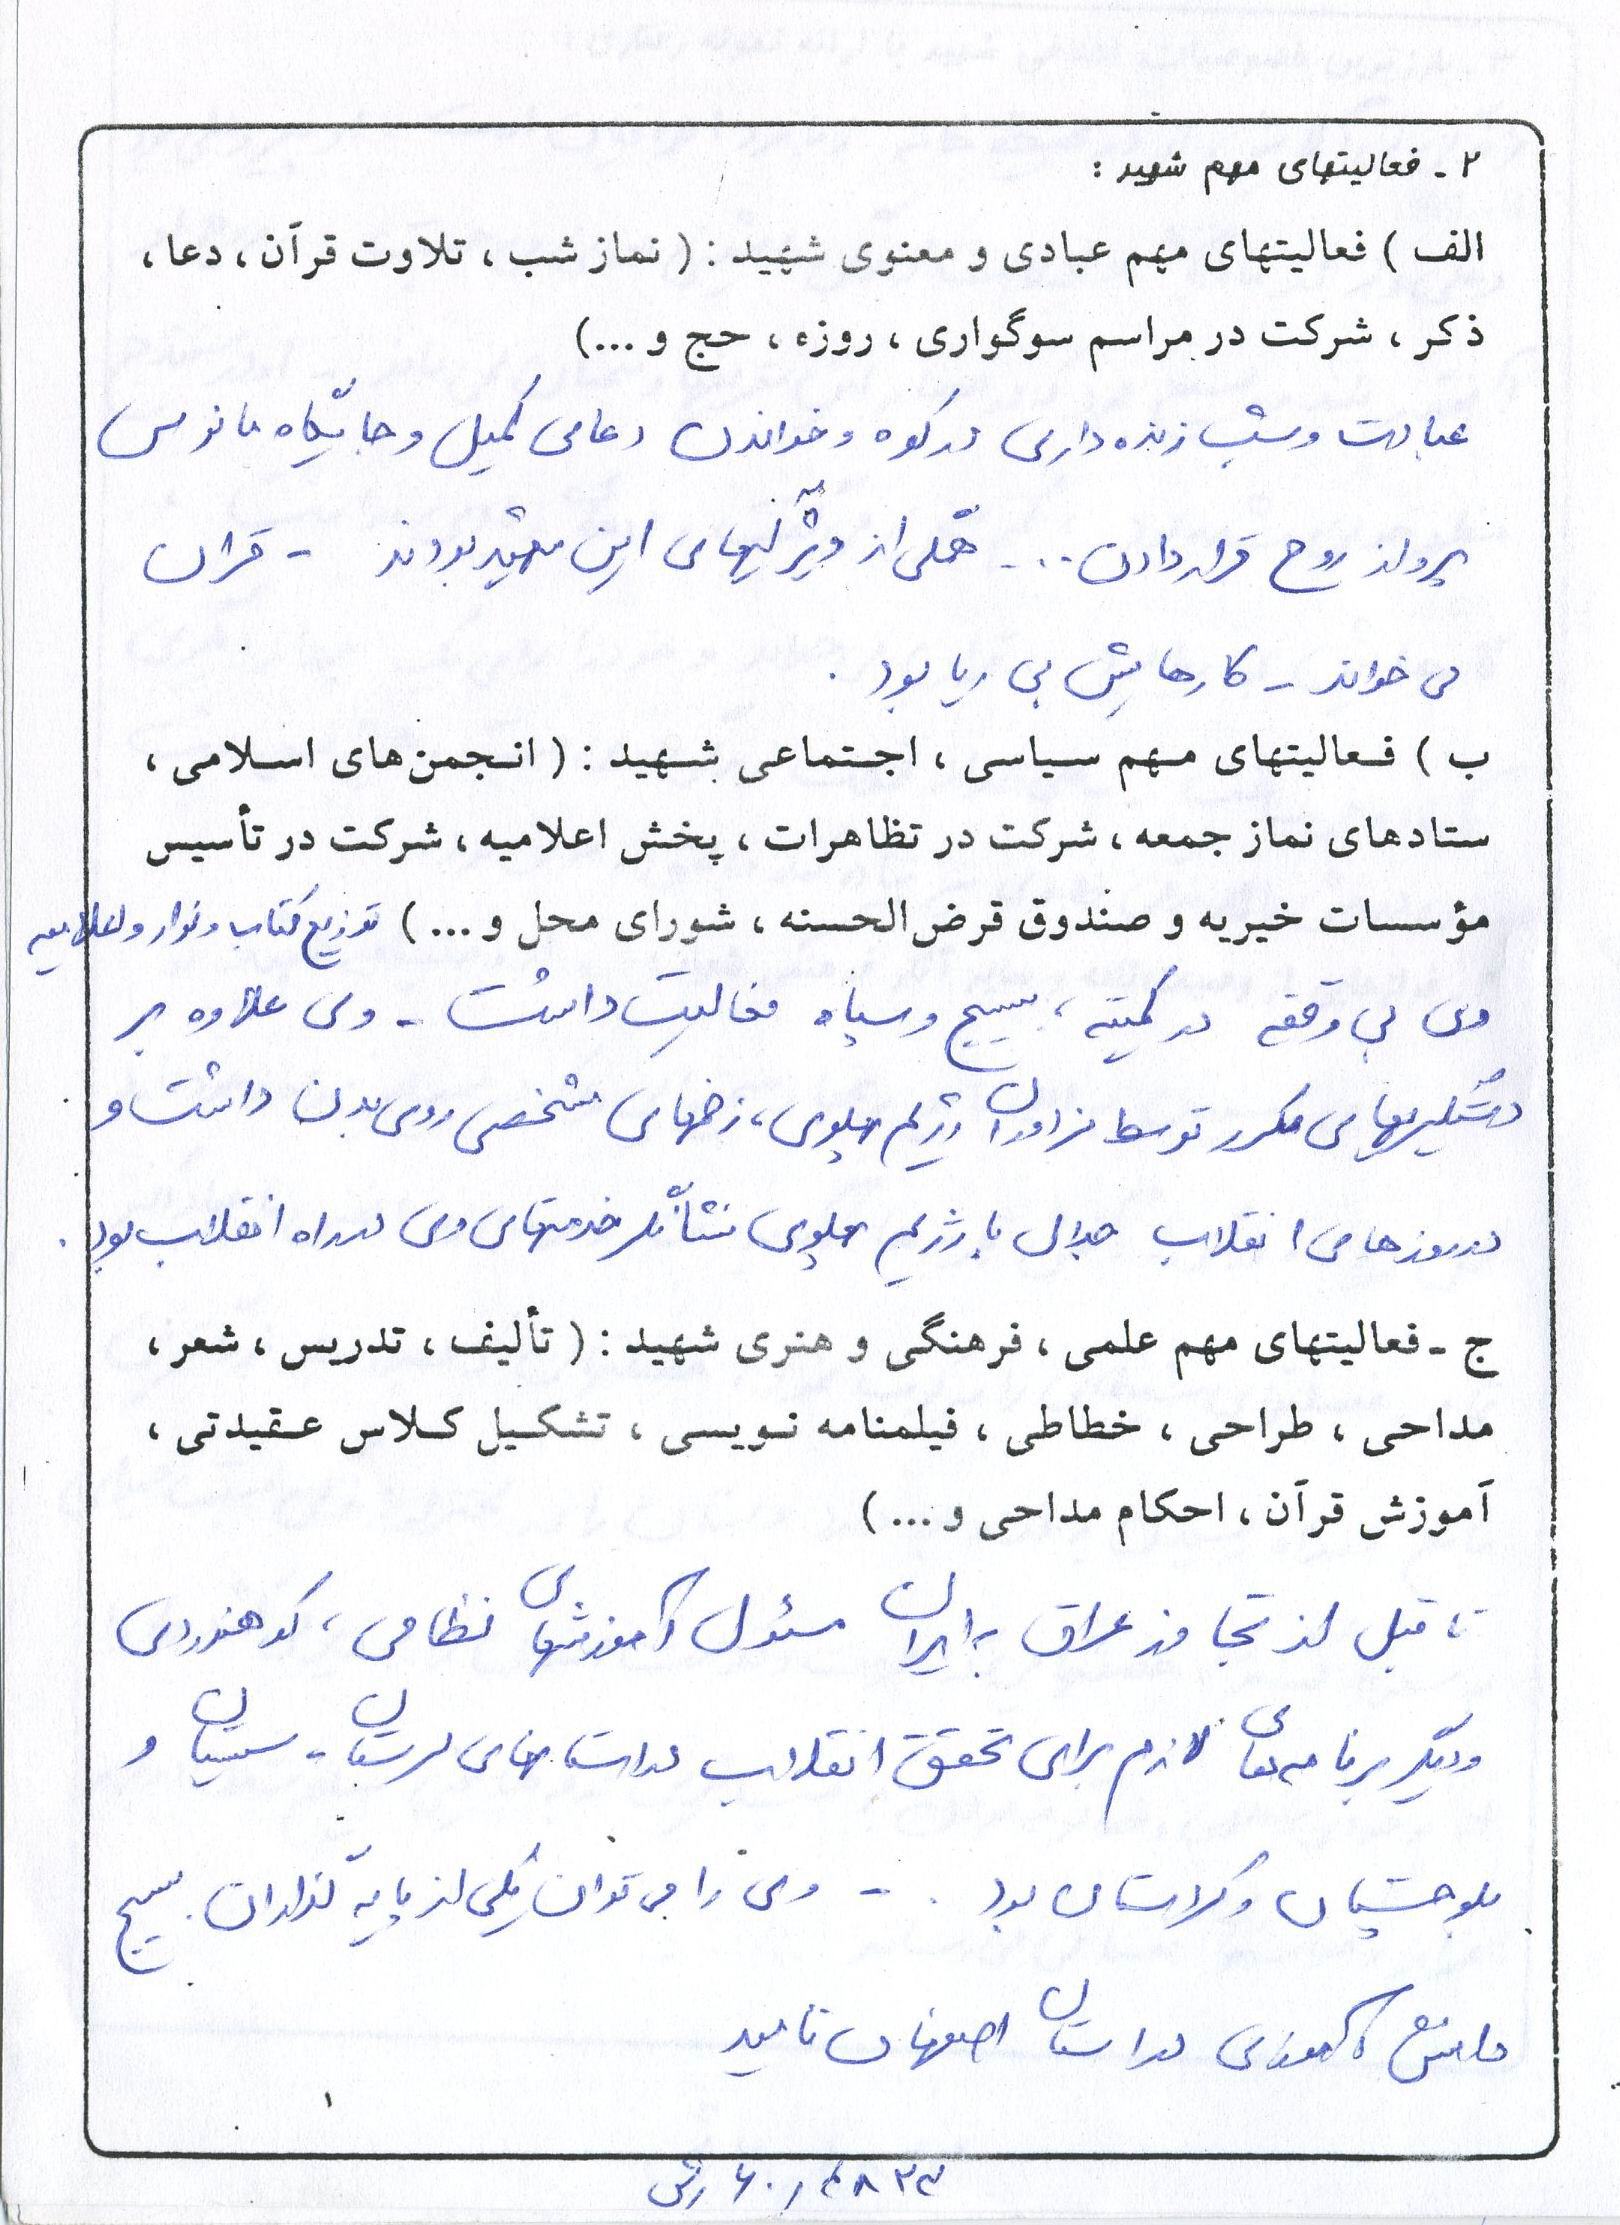 ۲ - فعالیتهای مهم شهید :
الف ) فعالیتهای مهم عبادی و معنوی شهید : ( نماز شب ، تلاوت قرآن ، دعا ،
ذکر ، شرکت در مراسم سوگواری ، روزه ، حج و ...)
عبادت و شب زنده داری در کوه و خواندن دعای کمیل و جایگاه مانوس
پرواز روح قرار دادن ... همگی از ویژگیهای این شهید بودند - قران
می خواند - کارهایش بی ریا بود .
ب ) فعالیتهای مهم سیاسی ، اجتماعی شهید : ( انجمن‌های اسلامی ،
ستادهای نماز جمعه ، شرکت در تظاهرات ، پخش اعلامیه ، شرکت در تأسیس
مؤسسات خیریه و صندوق قرض‌الحسنه ، شورای محل و ... ) توزیع کتاب و نوار و اعلامیه
وی بی وقفه در کمیته ، بسیج و سپاه فعالیت داشت - وی علاوه بر
دستگیریهای مکرر توسط مزدوران رژیم پهلوی ، زخمهای مشخصی روی بدن داشت و
در روزهای انقلاب جدال با رژیم پهلوی نشانگر خدمتهای وی در راه انقلاب بود .
ج - فعالیتهای مهم علمی ، فرهنگی و هنری شهید : ( تألیف ، تدریس ، شعر ،
مداحی ، طراحی ، خطاطی ، فیلمنامه نویسی ، تشکیل کلاس عقیدتی ،
آموزش قرآن ، احکام مداحی و ... )
تا قبل از تجاوز عراق به ایران مسئول آموزشهای نظامی ، کوهنوردی
و دیگر برنامه های لازم برای تحقق انقلاب در استانهای لرستان - سیستان و
بلوچستان و کردستان بود . - وی را می توان یکی از پایه گذاران بسیج
دانش آموزی در استان اصفهان نامید